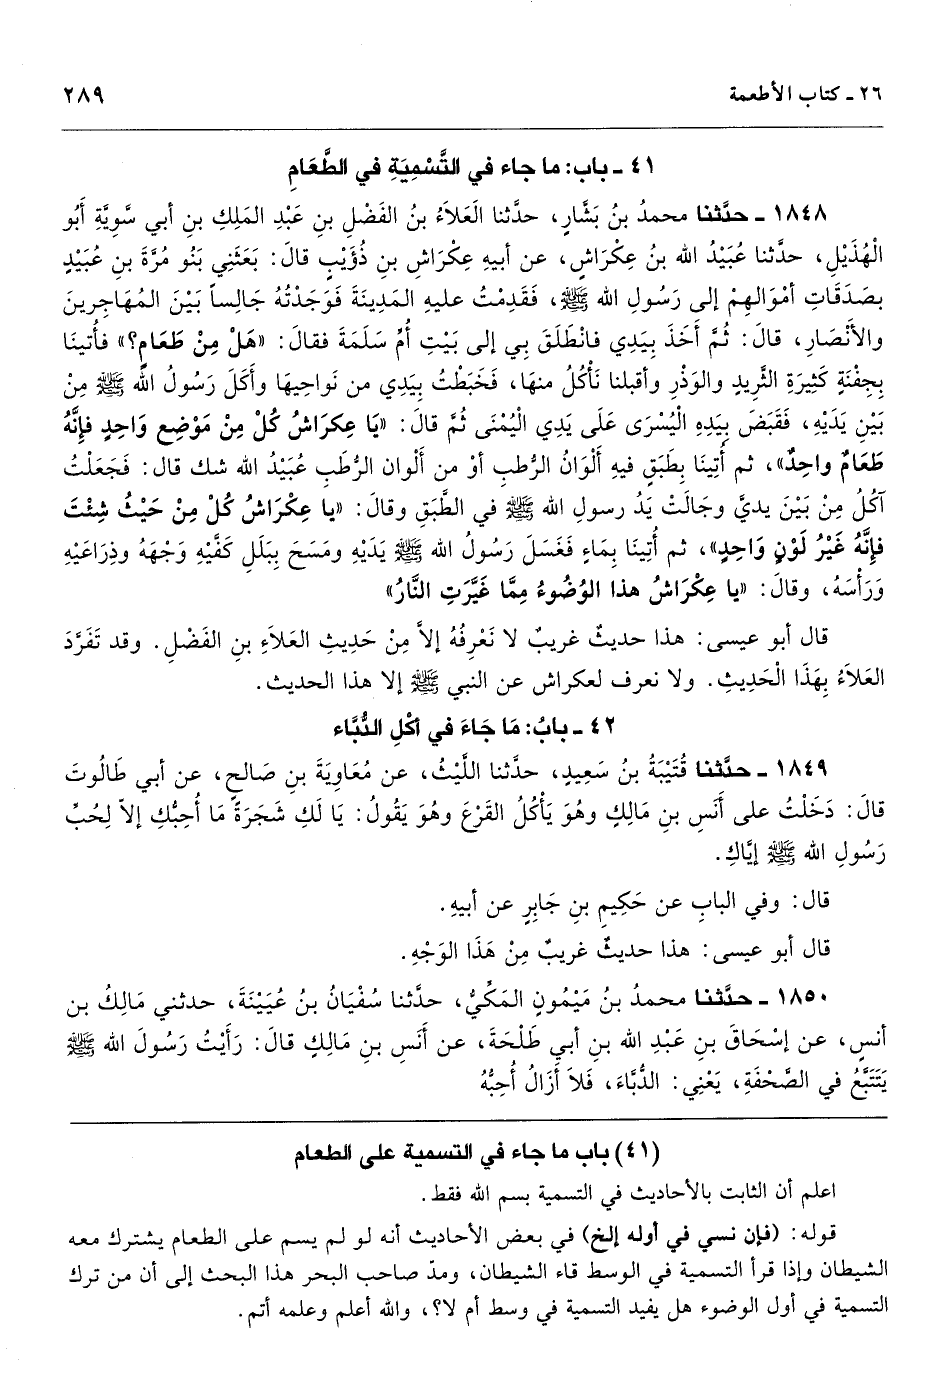 ٢٦ ـ كتاب الأطعمة ٢٨٩
٤١ ـ باب: ما جاء في التَّسْمِيَةِ في الطَّعَامِ
١٨٤٨ ـ حدَّثنا محمدُ بنُ بَشَّارٍ، حدَّثنا العَلاَءُ بنُ الفَضْلِ بنِ عَبْدِ المَلِكِ بنِ أبي سَوِيَّةِ أَبُو
الْهُذَيْلِ، حدَّثنا عُبَيْدُ الله بنُ عِكْرَاشٍ، عن أبيهِ عِكْرَاشِ بنِ ذُؤَيْبٍ قالَ: بَعَثَنِي بَنُو مُرَّةَ بنِ عُبَيْدٍ
بصَدَقَاتِ أَمْوَالِهِمْ إلى رَسُولِ الله ﷺ، فَقَدِمْتُ عليهِ المَدِينَةَ فَوَجَدْتُهُ جَالِساً بَيْنَ المُهَاجرِينَ
والأَنْصَارِ، قالَ: ثُمَّ أَخَذَ بِيَدِي فانْطَلَقَ بِي إلى بَيْتِ أُمِّ سَلَمَةَ فقالَ: «هَلْ مِنْ طَعَامٍ؟» فأُتينَا
بِجِفْنَةٍ كَثِيرَةِ الثَّرِيدِ والوَذْرِ وأقبلنا نَأْكُلُ منهَا، فَخَبَطْتُ بِيَدِي من نَواحِيهَا وأَكَلَ رَسُولُ الله ﷺ مِنْ
بَيْنِ يَدَيْهِ، فَقَبَضَ بِيَدِهِ الْيُسْرَى عَلَى يَدِي الْيُمْنَى ثُمَّ قالَ: «يَا عِكرَاشُ كُلْ مِنْ مَوْضِعٍ وَاحِدٍ فإِنَّهُ
طَعَامٌ واحِدٌ»، ثم أُتِينَا بِطَبَقٍ فيهِ أَلْوَانُ الرُّطبِ أوْ من أَلْوانِ الرُّطَبِ عُبَيْدُ الله شك قال: فَجَعَلْتُ
آكُلُ مِنْ بَيْنَ يديَّ وجَالَتْ يَدُ رسولِ الله ﷺ في الطَّبَقِ وقالَ: «يا عِكْرَاشُ كُلْ مِنْ حَيْثُ شِئْتَ
فإِنَّهُ غَيْرُ لَوْنٍ وَاحِدٍ»، ثم أُتِينَا بِمَاءٍ فَغَسَلَ رَسُولُ الله ﷺ يَدَيْهِ ومَسَحَ بِبَلَلِ كَفَّيْهِ وَجْهَهُ وذِرَاعَيْهِ
وَرَأْسَهُ، وقالَ: «يا عِكْرَاشُ هذا الوُضُوءُ مِمَّا غَيَّرَتِ النَّارُ»
قال أبو عيسى: هذا حديثٌ غريبٌ لا نَعْرِفُهُ إلاَّ مِنْ حَدِيثِ العَلاَءِ بنِ الفَضْلِ. وقد تَفَرَّدَ
العَلاَءُ بِهَذَا الْحَدِيثِ. ولا نعرف لعكراش عن النبي ﷺ إلا هذا الحديث.
٤٢ ـ بابُ: مَا جَاءَ في أكْلِ الدُّبَّاء
١٨٤٩ ـ حدَّثنا قُتَيْبَةُ بنُ سَعِيدٍ، حدَّثنا اللَّيْثُ، عن مُعَاوِيَةَ بنِ صَالحٍ، عن أبي طَالُوتَ
قالَ: دَخَلْتُ على أَنَسِ بنِ مَالِكٍ وهُوَ يَأْكُلُ القَرْعَ وهُوَ يَقُولُ: يَا لَكِ شَجَرَةً مَا أُحِبُّكِ إلاّ لِحُبِّ
رَسُولِ الله ﷺ إيَّاكِ.
قال: وفي البابِ عن حَكِيمِ بنِ جَابِرٍ عن أبيهِ.
قال أبو عيسى: هذا حديثٌ غريبٌ مِنْ هَذَا الوَجْهِ.
١٨٥٠ ـ حدَّثنا محمدُ بنُ مَيْمُونٍ المَكِّيُّ، حدَّثنا سُفْيَانُ بنُ عُيَيْنَةَ، حدثني مَالِكُ بن
أنسٍ، عن إسْحَاقَ بنِ عَبْدِ الله بنِ أبي طَلْحَةَ، عن أَنَسِ بنِ مَالِكٍ قالَ: رَأَيْتُ رَسُولَ الله ﷺ
يَتَتَبَّعُ في الصَّحْفَةِ، يَعْنِي: الدُّبَّاءَ، فَلاَ أَزَالُ أُحِبُّهُ
(٤١) باب ما جاء في التسمية على الطعام
اعلم أن الثابت بالأحاديث في التسمية بسم الله فقط.
قوله: (فإن نسي في أوله إلخ) في بعض الأحاديث أنه لو لم يسم على الطعام يشترك معه
الشيطان وإذا قرأ التسمية في الوسط قاء الشيطان، ومدّ صاحب البحر هذا البحث إلى أن من ترك
التسمية في أول الوضوء هل يفيد التسمية في وسط أم لا؟، والله أعلم وعلمه أتم.